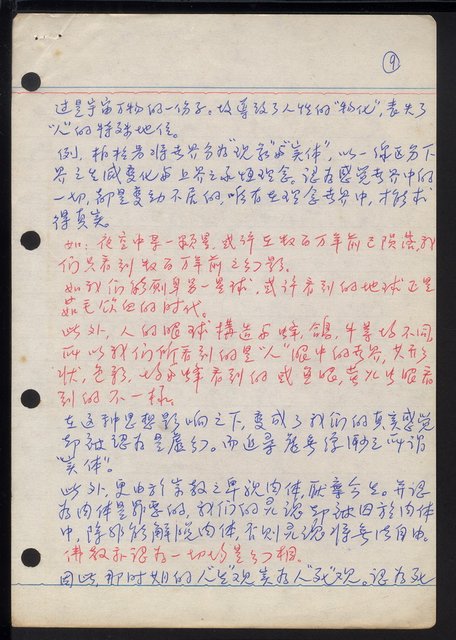 ⑨
过是宇宙万物的一份子。故导致了人性的“物化”，丧失了
“人”的特殊地位。
例，柏拉图将世界分为“现象”与“实体”，以一线区分下
界之生灭变化与上界之永恒理念。认为感觉世界中的
一切，都是变动不居的，唯有在理念世界中，才能求
得真实。
如：夜空中某一颗星，或许在数百万年前已陨落，我
们只看到数百万年前之幻影。
如我们能到另一星球，或许看到的地球正是
茹毛饮血的时代。
此外，人的眼球构造与蜂，鸽，牛等均不同，
所以我们所看到的是“人”眼中的世界，其形
状，色彩，均与蜂看到的或鱼眼，萤火虫眼看
到的不一样。
在这种思想影响之下，变成了我们的真实感觉
却被认为是虚幻。而追寻虚无缥缈之所谓
“实体”。
此外，更由于宗教之卑视肉体，厌弃今生。并认
为肉体是罪恶的，我们的灵魂却被囚于肉体
中，除非能解脱肉体，否则灵魂将无法自由。
佛教亦认为一切均是幻相。
因此，那时期的人“生”观实为人“死”观。认为死